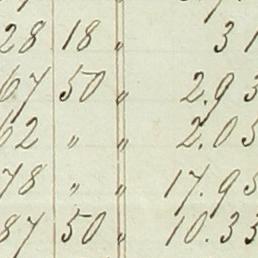 28 18 " 31
67 50 " 2.93
62 " " 2.05
78 " " 17.95
87 50 " 10.33